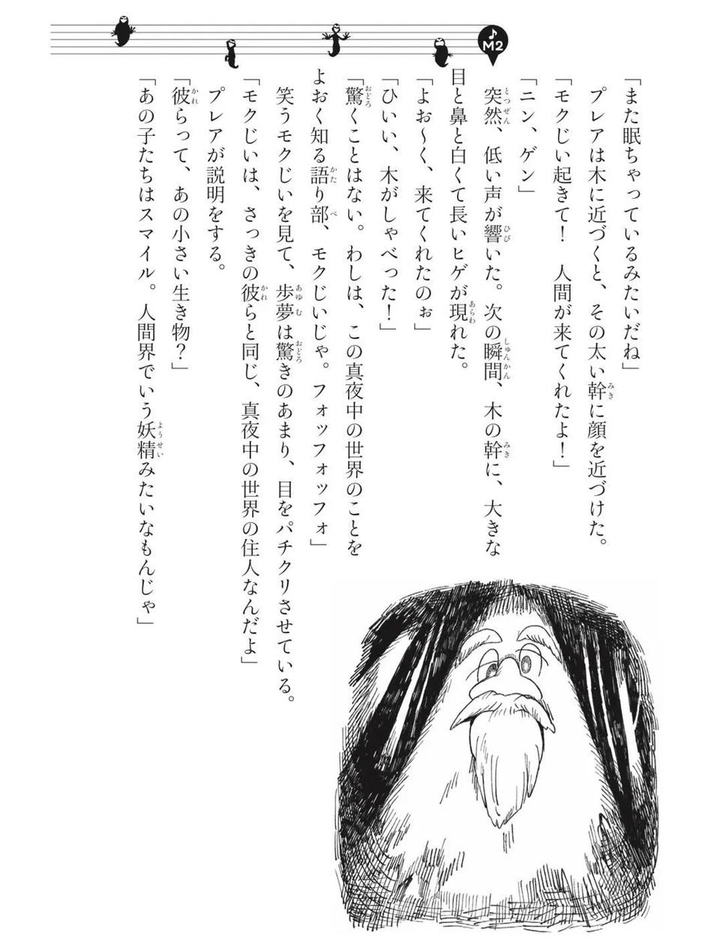 ♪
M2
「また眠ちゃっているみたいだね」
プレアは木に近づくと、その太い幹に顔を近づけた。
「モクじい起きて！　人間が来てくれたよ！」
「ニン、ゲン」
突然、低い声が響いた。次の瞬間、木の幹に、大きな
目と鼻と白くて長いヒゲが現れた。
「よお〜く、来てくれたのぉ」
「ひいい、木がしゃべった！」
「驚くことはない。わしは、この真夜中の世界のことを
よおく知る語り部、モクじいじゃ。フォッフォッフォ」
笑うモクじいを見て、歩夢は驚きのあまり、目をパチクリさせている。
「モクじいは、さっきの彼らと同じ、真夜中の世界の住人なんだよ」
プレアが説明をする。
「彼らって、あの小さい生き物？」
「あの子たちはスマイル。人間界でいう妖精みたいなもんじゃ」